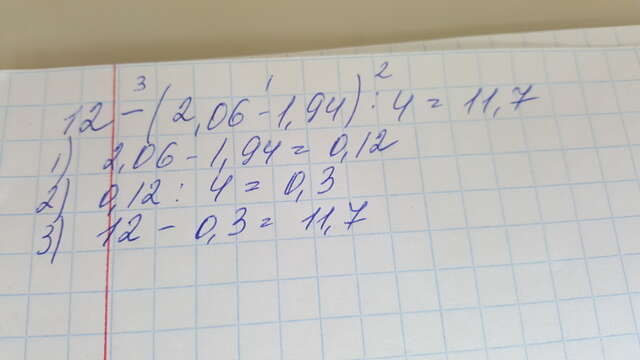 12 - (2,06 - 1,94) : 4 = 11,7
1) 2,06 - 1,94 = 0,12
2) 0,12 : 4 = 0,3
3) 12 - 0,3 = 11,7